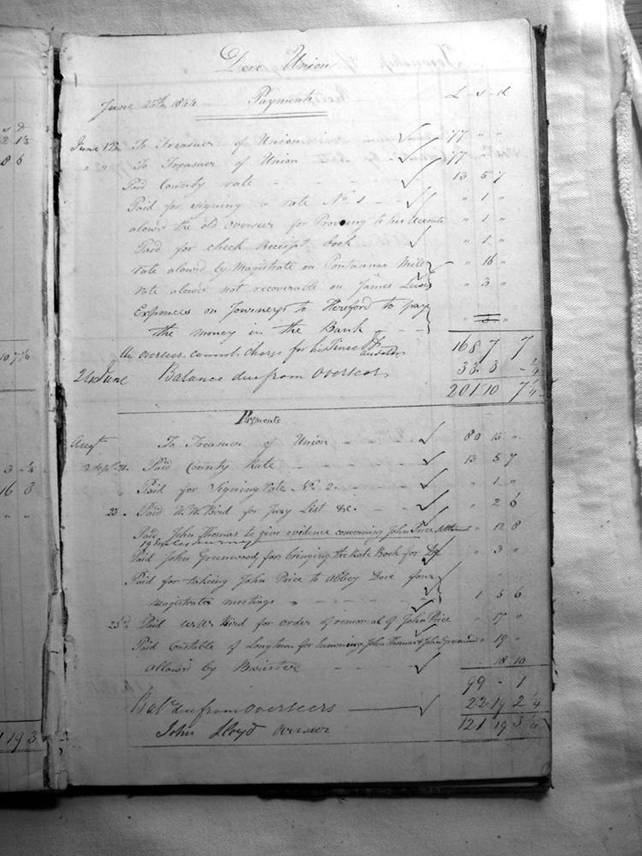 s d
2 1½
8 6
10 7½
3
16 8
1 19 3
Dore Union
June 25th 1844 Payments £ s d
June 12 To Treasurer of Union 77 " "
" " To Treasurer of Union 77 " "
Paid County rate 13 5 7
Paid for Signing a rate No 1 " 1 "
alowd the old overseer for Proving to his " 1 "
Paid for check Receipt book " 1 "
rate alowed by Magistrate on Mill " 16 "
rate alowd not recoverable on James Lewis " 3 "
Expences on Journeys to Hereford to pay
the money in the Bank
overseer cannot charge for his Time
168 7 7
24 June Balance due from overseer 33 3
201 10 7¼
Payments
Augt To Treasurer of Union 80 15 "
2 Sept Paid County Rate 13 5 7
" Paid for Signing Rate No 2 " 1 "
23 Paid Wm Bird for Jury List &c " 2 6
Paid John Thomas to give evidence concerning John Price " 12 8
Paid John Greenwood for bringing the Rate Book for " 3 "
Paid for taking John Price to Abbey Dore four
magistrates meetings 1 5 6
23d Paid Wm Bird for order of removal of John Price " 17 "
Paid Constable of Longtown for Summoning John Thomas & John Greenwood " 19 "
allowd by 18 10
99 " 1
Bale due from overseers 22 19 2¼
John Lloyd overseer 121 19 3¼